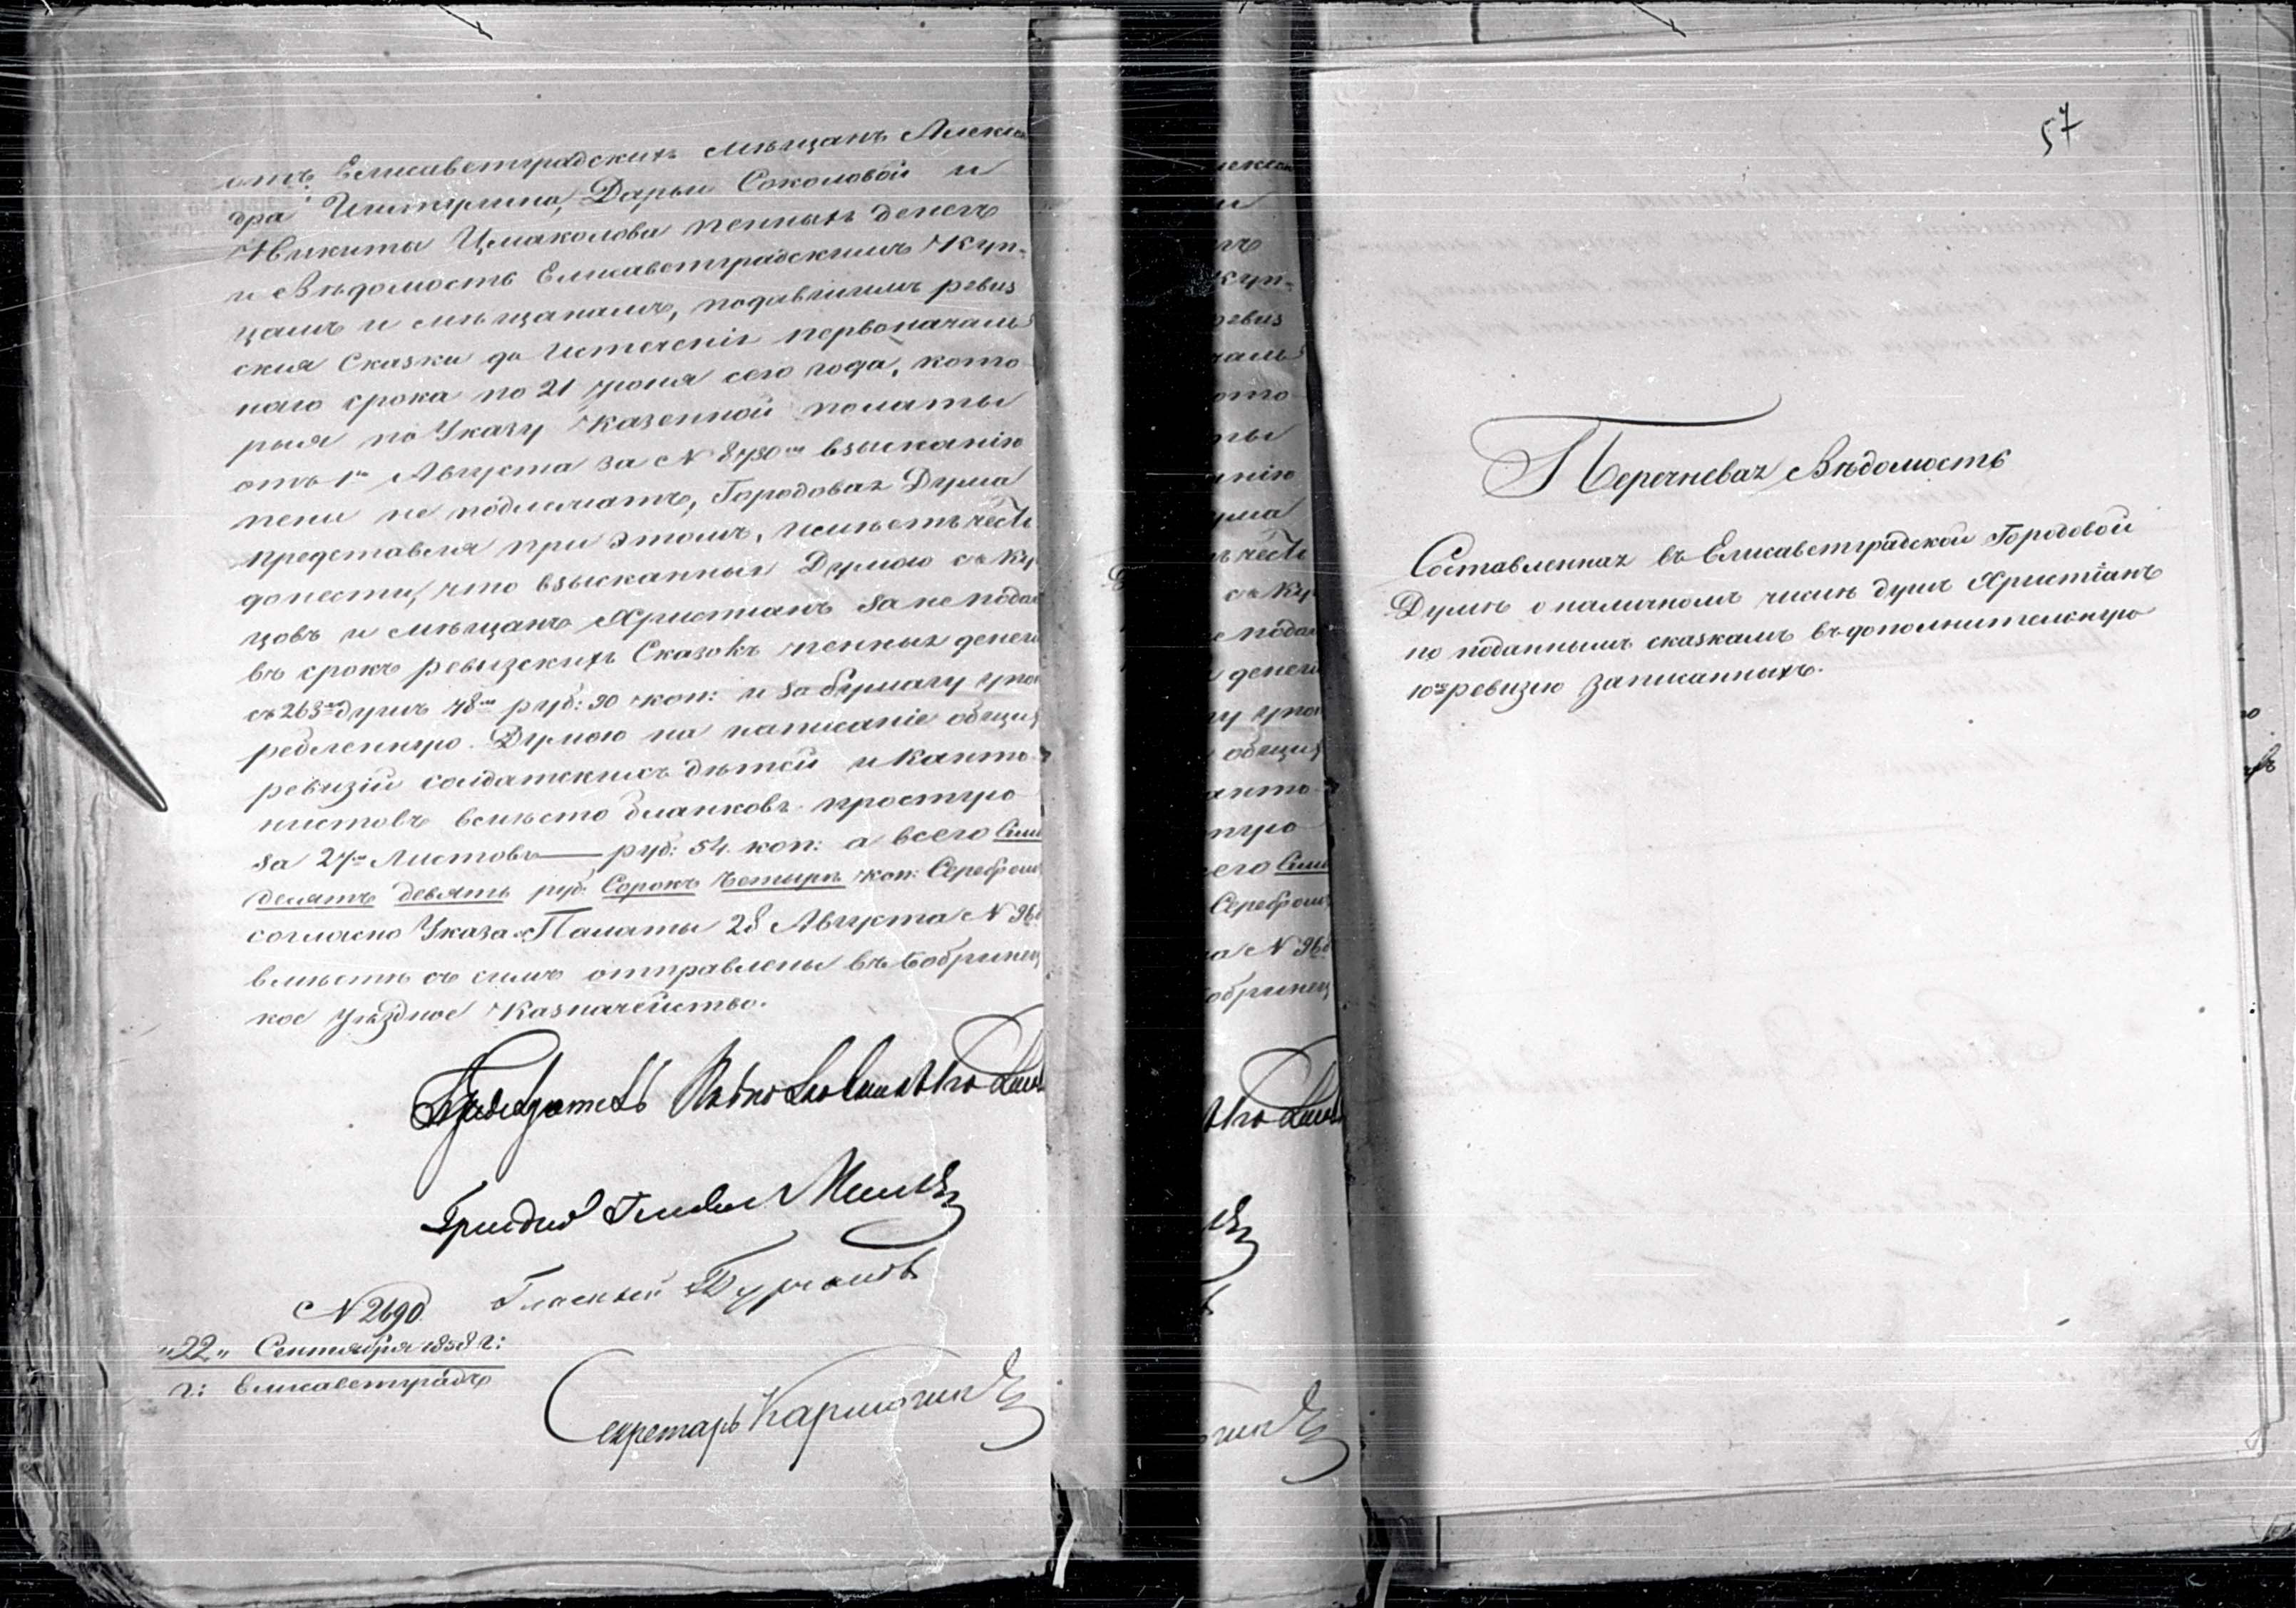 отъ Елисаветградскихъ мѣщанъ Алекса
дра Дарьи Соколовой и
Никиты Цмаколова пенныхъ денегъ
и Вѣдомость Елисаветградскимъ Куп-
цамъ и мѣщанамъ, подавшимъ ревиз
скія Сказки до истеченія первоначаль
наго срока по 21 Іюня сего года, кото-
рыя по Указу Казенной полаты
отъ 1го Августа за N взысканію
пени не подлежатъ, Городовая Дума
представляя при этомъ, имѣетъ честь
донести, что взысканныя Думою съ Куп
цовъ и мѣщанъ Христіанъ за неподач
въ срокъ ревизскихъ Сказокъ пенныя деньги
съ 263хъ душъ 78мь руб: 90 коп: и за бумагу упот
ребленную Думою на написаніе общих
ревизій солдатскихъ дѣтей и Канто-
нистовъ вмѣсто бланковъ простую
за 27мь Листовъ — руб: 54 коп: а всего Семь
десятъ девять руб: Сорокъ Четыре коп: Серебромъ
согласно Указа Палаты 28 Августа N 96
вмѣстѣ съ симъ отправлены въ Бобринец
кое Уѣздное Казначейство.
Предсѣдатель
Гласный
N 2690
"22" Сентября 1858 г:
г: Елисаветградъ
Секретарь
57
Перечневая Вѣдомость
Составленная въ Елисаветградской Городовой
Думѣ о наличномъ числѣ душъ Христіанъ
по поданнымъ сказкамъ въ дополнительную
10ю ревизію записанныхъ.